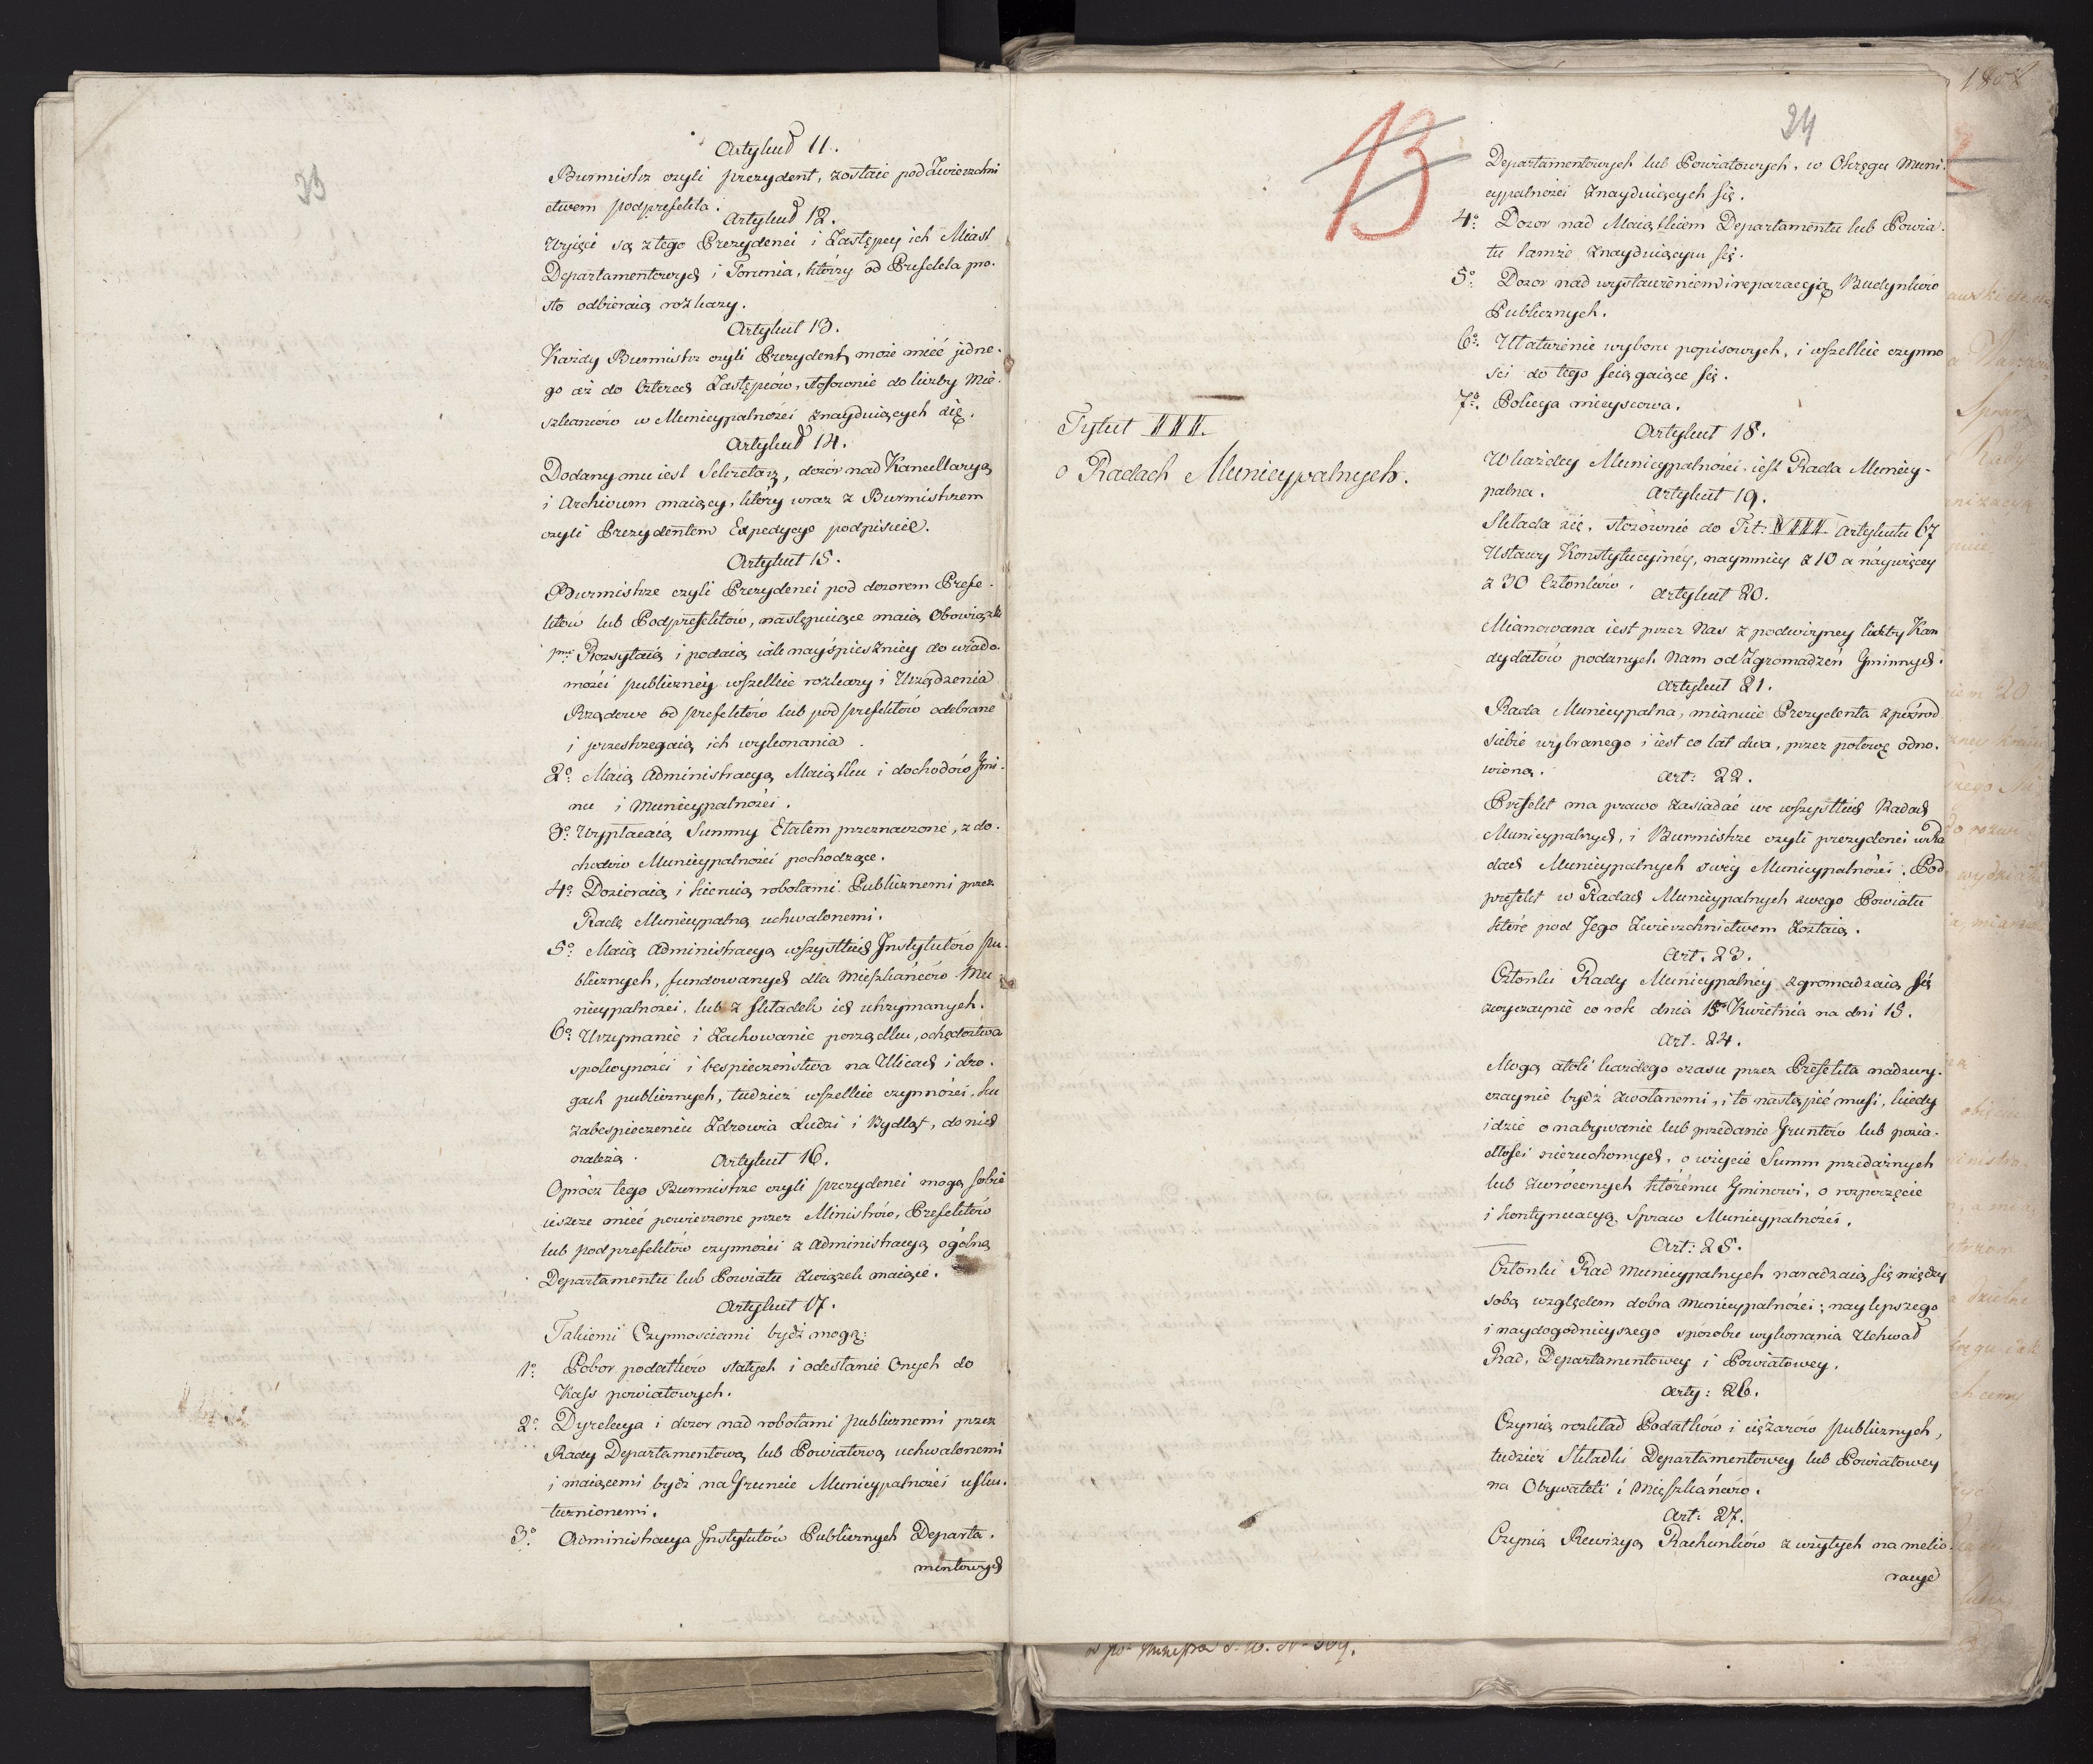 23
Artykuł 11.
Burmistrz czyli prezydent, zostaie pod Zwierzchni
ctwem podprefekta.
Artykuł 12.
Wyjęci są z tego Prezydenci i Zastępcy ich Miast
Departamentowych i Torunia, którzy od Prefekta pro-
sto odbieraią rozkazy.
Artykuł 13.
Każdy Burmistrz czyli Prezydent, może mieć jedne-
go aż do Czterech Zastępców, stosownie do liczby Mie-
szkańców w Municypalności znayduiących się.
Artykuł 14.
Dodany mu iest Sekretarz, dozór nad Kancellaryą
i Archivum maiący, który wraz z Burmistrzem
czyli Prezydentem Expedycye podpisuie.
Artykuł 15.
Burmistrze czyli Prezydenci pod dozorem Prefe-
któw lub Podprefektów, następuiące maią Obowiązki
pmo Rozsyłaią i podaią iak nayśpieszniey do wiado-
mości publiczney wszelkie rozkazy i Urządzenia
Rządowe od prefektów lub podprefektów odebrane
i przestrzegaią ich wykonania.
2o Maią Administracyą Maiątku i dochodów Gmi-
nu i Municypalności.
3o Wypłacaią Summy Etatem przeznaczone, z do-
chodów Municypalności pochodzące.
4o Dozieraią i kieruią robotami Publicznemi przez
Radę Municypalną uchwalonemi.
5o Maią Administracyą wszystkich Instytutów pu-
blicznych, fundowanych dla Mieszkańców Mu-
nicypalności, lub z składek ich utrzymanych.
6o Utrzymanie i Zachowanie porządku, ochędostwa
spokoyności i bespieczeństwa na Ulicach i dro-
gach publicznych, tudzież wszelkie czynności, ku
zabespieczeniu Zdrowia Ludzi i Bydląt, do nich
należą.
Artykuł 16.
Oprócz tego Burmistrze czyli prezydenci mogą sobie
ieszcze mieć powierzone przez Ministrów, Prefektów
lub podprefektów czynności z Administracyą ogólną
Departamentu lub Powiatu Związek maiące.
Artykuł 17.
Takiemi Czynnosciami bydź mogą:
1o Pobor podatków stałych i odesłanie Onych do
Kass powiatowych.
2o Dyrekcya i dozor nad robotami publicznemi przez
Rady Departamentową lub Powiatową uchwalonemi
i maiącemi bydź na Gruncie Municypalności usku-
tecznionemi.
3o Administracya Instytutów Publicznych Departa-
mentowych
13
24
Departamentowych lub Powiatowych, w Okręgu Muni-
cypalności znayduiących się.
4o Dozor nad Maiątkiem Departamentu lub Powia-
tu tamże znayduiącym się.
5o Dozor nad wystawieniem i reparacyią Budynków
Publicznych.
6o Ułatwienie wyboru popisowych, i wszelkie czynno
sci do tego sciągaiące się.
7o Policya mieyscowa.
Tytuł III.
o Radach Municypalnych.
Artykuł 18.
W każdey Municypalności iest Rada Municy-
palna.
Artykuł 19.
Składa się, stosownie do Tit: VIII. Artykułu 67
Ustawy Konstytucyiney, naymniey z 10 a naywięcey
z 30 Członków.
Artykuł 20.
Mianowana iest przez Nas z podwóyney liczby Kan
dydatów podanych Nam od Zgromadzeń Gminnych.
Artykuł 21.
Rada Municypalna, mianuie Prezydenta z pośród
siebie wybranego i iest co lat dwa, przez połowę odno-
wioną.
Art: 22.
Prefekt ma prawo zasiadać we wszystkich Radach
Municypalnych, i Burmistrze czyli prezydenci w Ra
dach Municypalnych swéy Municypalności. Pod-
prefekt w Radach Municypalnych swego Powiatu
które pod Jego Zwierzchnictwem Zostaią.
Art. 23.
Członki Rady Municypalney zgromadzaią się
zwyczaynie co rok dnia 15o Kwietnia na dni 15.
Art. 24.
Mogą atoli każdego czasu przez Prefekta nadzwy-
czaynie bydź zwołanemi, i to nastąpić musi, kiedy
idzie o nabywanie lub przedanie Gruntów lub posia-
dłości nieruchomych, o użycie Summ przedażnych
lub zwróconych któremu Gminowi, o rozpoczęcie
i kontynuacyą Spraw Municypalności.
Art: 25.
Członki Rad Municypalnych naradzaią się między
sobą względem dobra Municypalności; naylepszego
i naydogodnieyszego sposobu wykonania Uchwał
Rad, Departamentowey i Powiatowey.
Arty: 26.
Czynią rozkład Podatków i ciężarów publicznych,
tudzież Składki Departamentowey lub Powiatowey
na Obywateli i Mieszkańców.
Art: 27.
Czynią Rewizyą Rachunków z użytych na melio-
racye